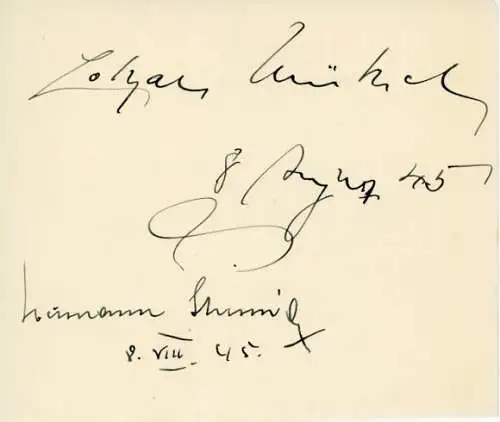 Lothar Müthel
8 August 45
Hermann
8. VIII. 45.